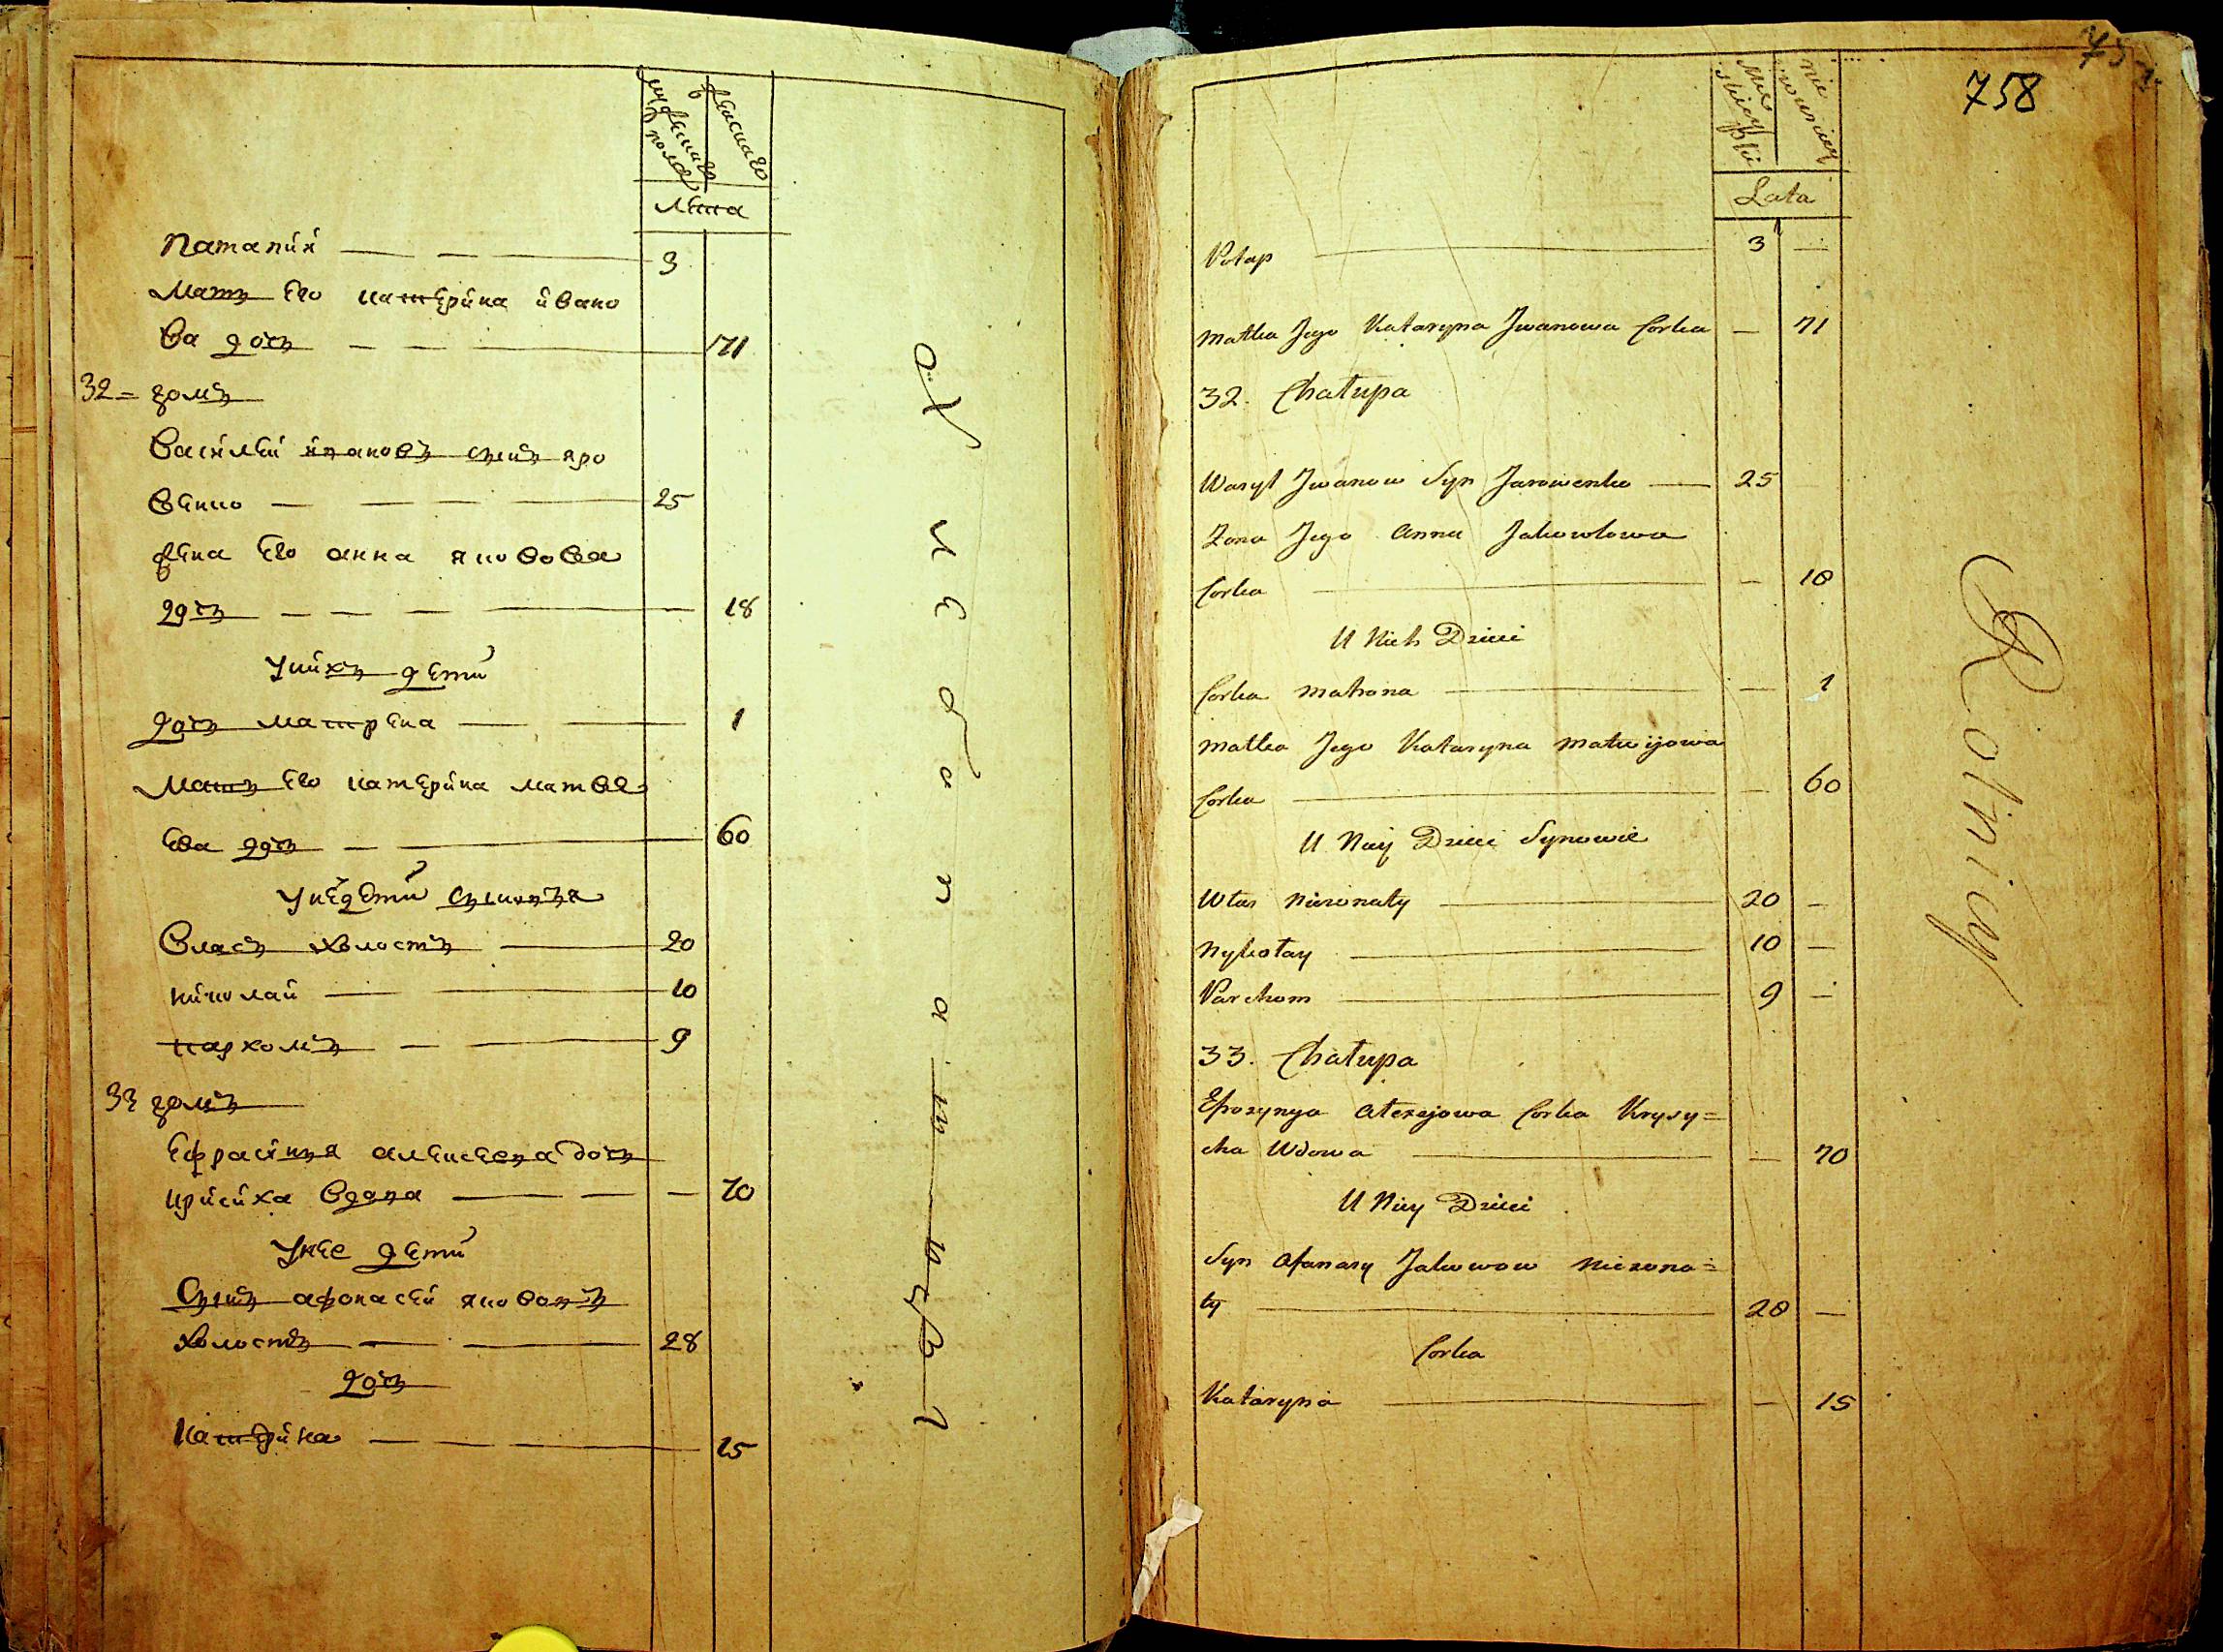 мужеска пола
женска
Лета
Потапий — 3
Мать Его катерина ивано
ва дочь — 71
32 = домъ
Василей ивановъ сынъ яро
венко — 25
жена Его анна яковова
дочь — 18
У нихъ дети
дочь матрена — 1
Мать Его катерина матве
ева дочь — 60
У нее дети сыновья
Власъ холостъ — 20
николай — 10
пархомъ — 9
33 домъ
Ефросиния алексеева дочь
крисиха вдова — — 70
У нее дети
Сынъ афонасей яковавъ
холостъ — 28
дочь
катерина — 15
758
Męskiey płci
niewieściey
Lata
Potap — 3 —
Matka Jego Kataryna Jwanowa Corka — 71
32. Chałupa
Wasyl Jwanow Syn Jarowenko — 25
Zona Jego Anna Jakowlowa
Corka — — 18
U Nich Dzieci
Corka Matrona — — 1
Matka Jego Kataryna Matwijowa
Corka — — 60
U Niey Dzieci Synowie
Włas Nieżonaty — 20 —
Nykołay — 10 —
Parchom — 9 —
33. Chałupa
Efrozynya Alexejowa Corka Krysy=
cha Wdowa — — 70
U Niey Dzieci
Syn Afanasy Jakowow Nieżona=
ty — 28 —
Corka
Kataryna — — 15
Rolnicy